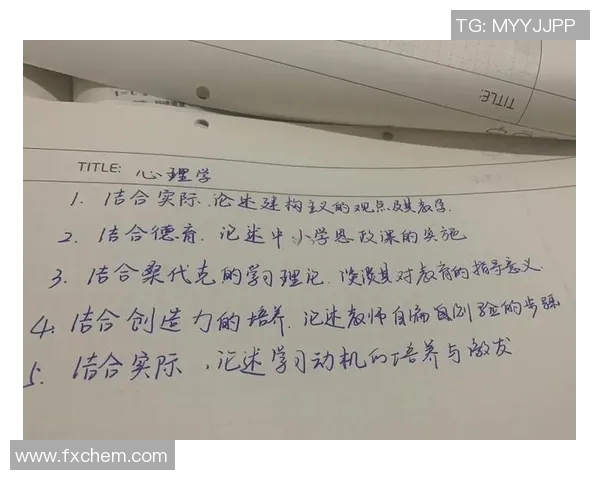 TG: MYYJJPP
TITLE:
TITLE: 心理学
1. 结合实际.论述建构主义的观点及其教学.
2. 结合德育.论述中小学思政课的实施
3. 结合桑代克的学习理论.谈谈其对教育的指导意义.
4. 结合创造力的培养.论述教师自编自例验的步骤
5. 结合实际,论述学习动机的培养与激发
www.fxchem.com